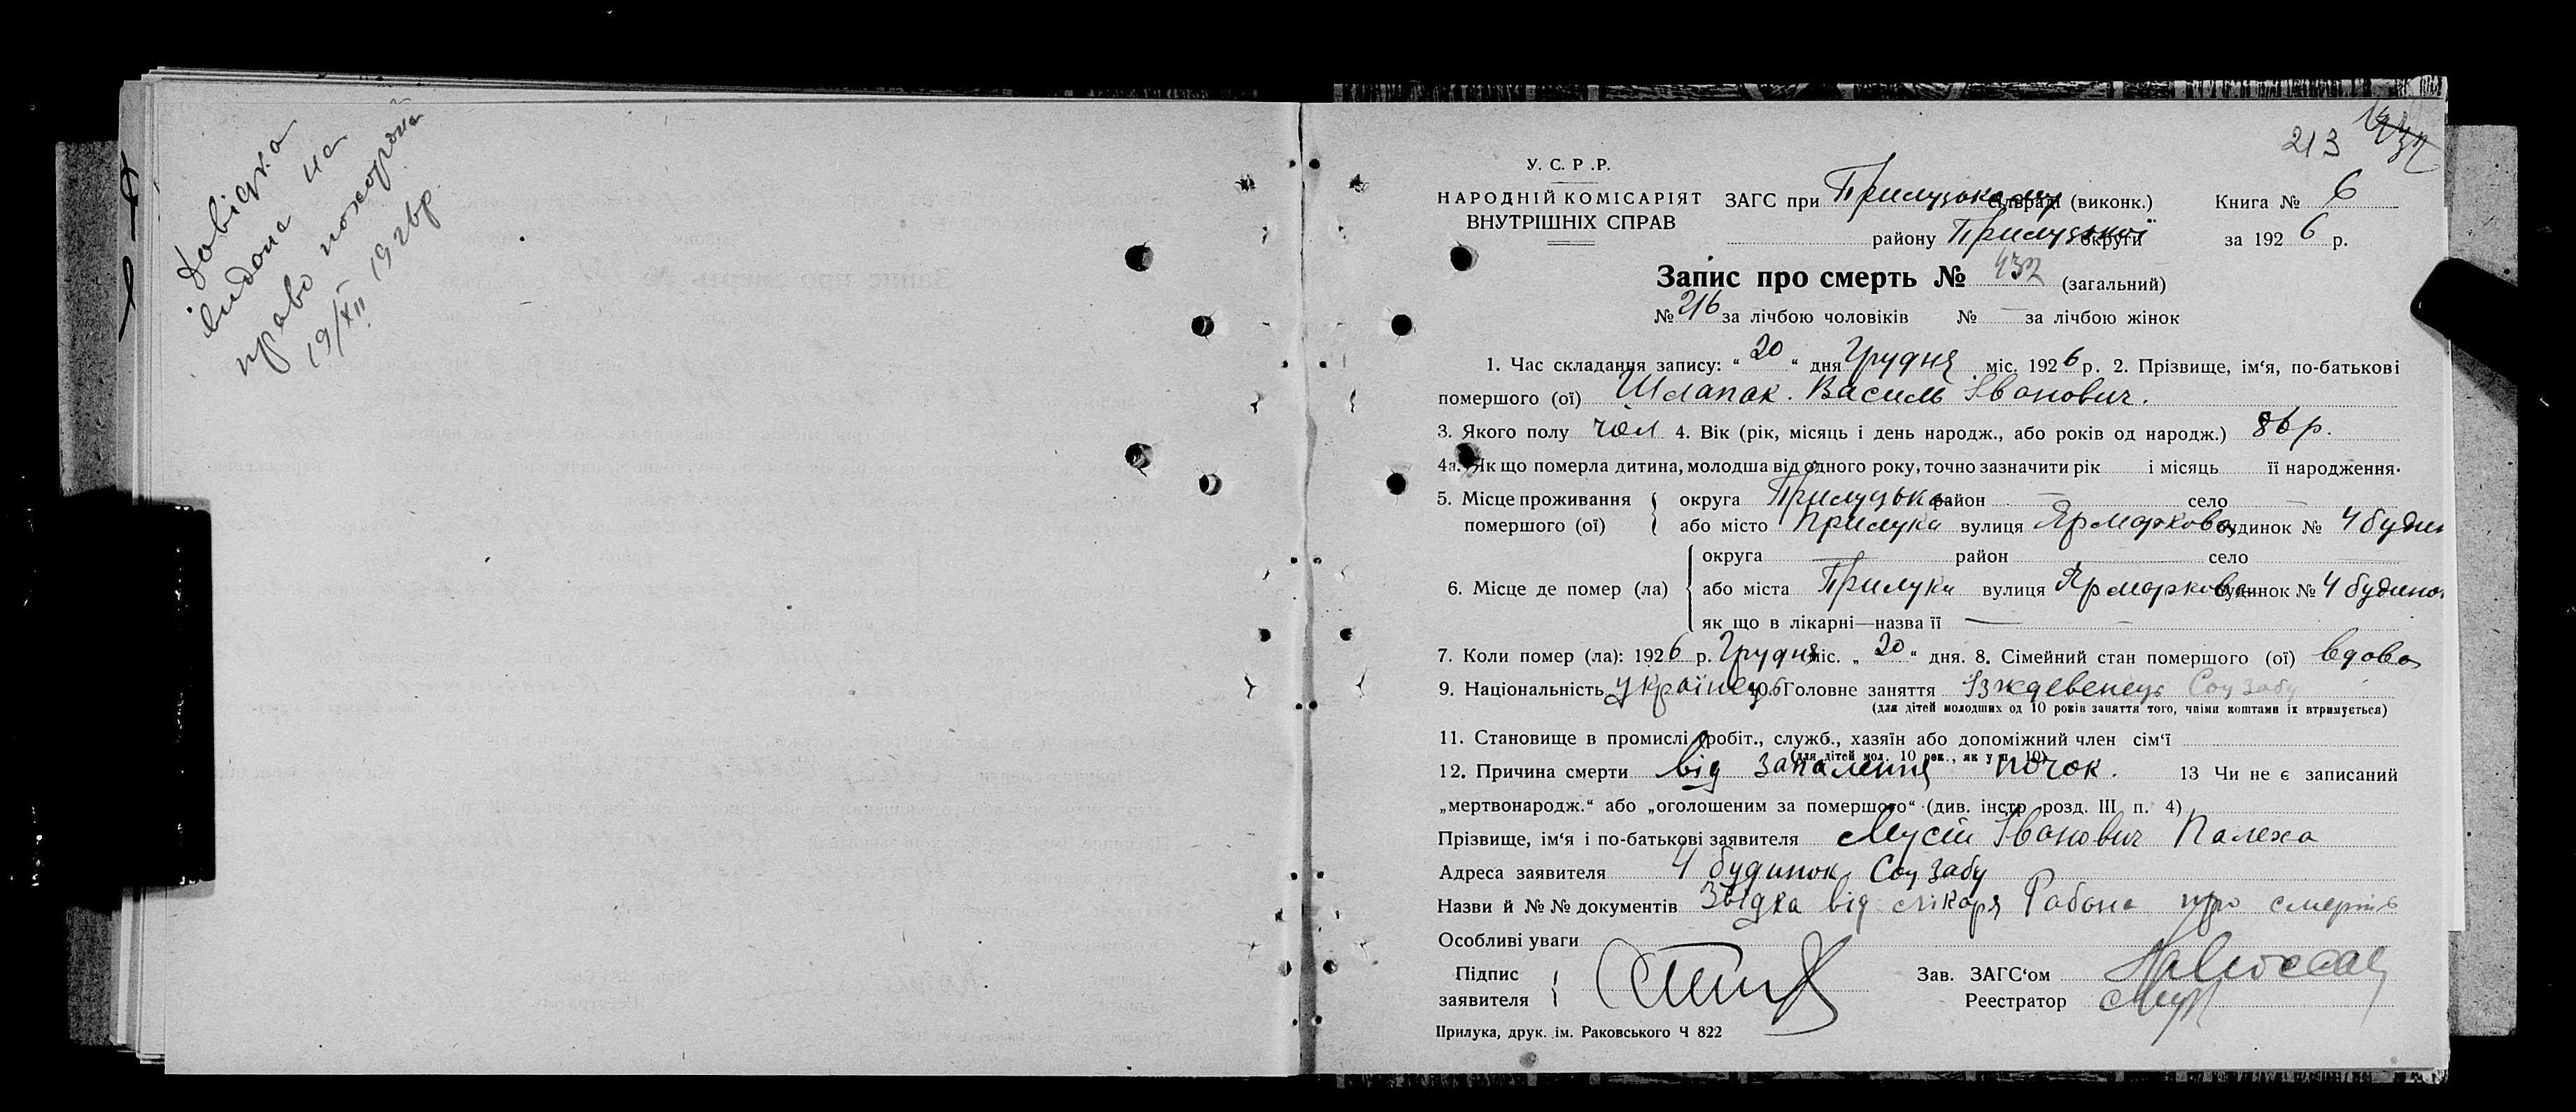 Довідка
видана на
право похорона
19/XII 1926р.
213
У. С. Р. Р.
НАРОДНІЙ КОМІСАРІЯТ
ВНУТРІШНІХ СПРАВ
ЗАГС при Прилуцькому сільраді (виконк.)
Книга № 6
району Прилуцької округи
за 1926 р.
Запис про смерть № 437 (загальний)
№ 216 за лічбою чоловіків № — за лічбою жінок
1. Час складання запису: “ 20 “ дня Грудня міс. 1926 р. 2. Прізвище, ім‘я, по-батькові
помершого (ої) Шлапак. Василь Іванович.
3. Якого полу чол 4. Вік (рік, місяць і день народж., або років од народж.) 86 р.
4а. Як що померла дитина, молодша від одного року, точно зазначити рік і місяць її народження.
5. Місце проживання помершого (ої) { округа Прилуцька район — село —
або місто Прилука вулиця Ярмаркова будинок № 4 будин
6. Місце де помер (ла) { округа — район — село —
або міста Прилуки вулиця Ярмаркова будинок № 4 будинок
як що в лікарні—назва її —
7. Коли помер (ла): 1926 р. Грудня міс. „ 20 “ дня. 8. Сімейний стан помершого (ої) вдова
9. Національність українець 10. Головне заняття Ізждевенець Соцзабу
(для дітей молодших од 10 років заняття того, чиїми коштами їх втримується)
11. Становище в промислі (робіт., служб., хазяїн або допоміжний член сім‘ї
(для дітей мол. 10 рок., як у п. 10)
12. Причина смерти від запалення почок. 13 Чи не є записаний
„мертвонародж.“ або „оголошеним за помершого“ (див. інстр. розд. III п. 4)
Прізвище, ім‘я і по-батькові заявителя Мусій Іванович Палеха
Адреса заявителя 4 будинок Соцзабу
Назви й №№ документів Звідка від лікаря Рабона про смерть
Особливі уваги
Підпис заявителя {
Зав. ЗАГС‘ом
Реестратор
Прилука, друк. ім. Раковського Ч 822